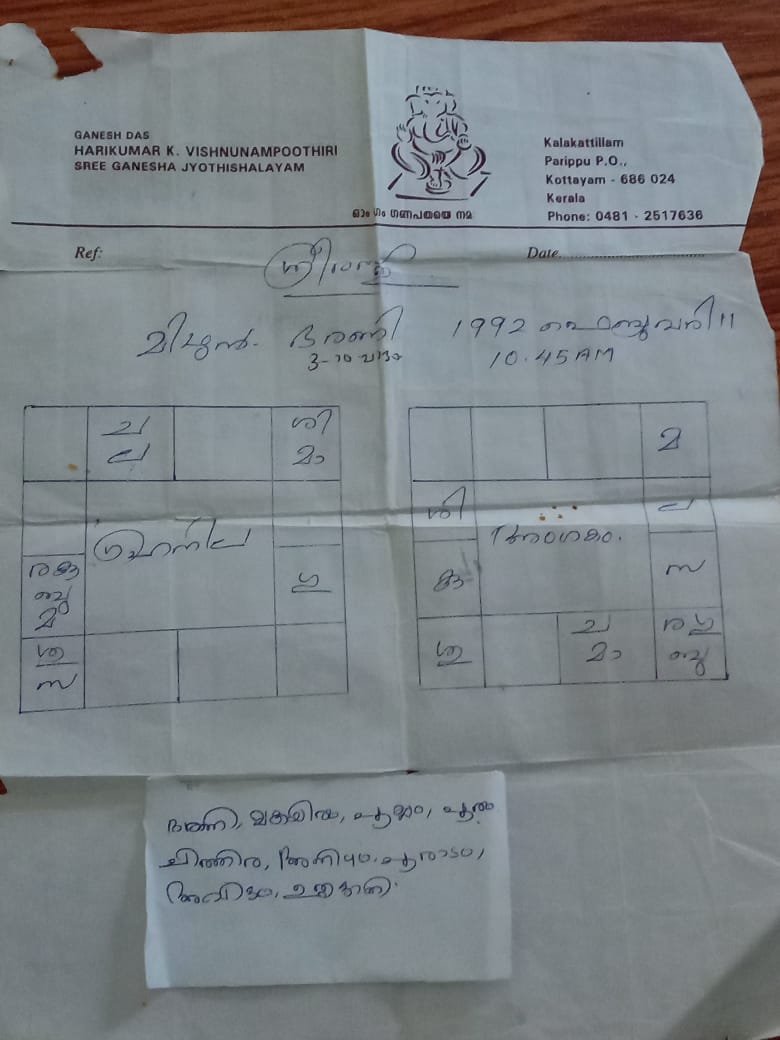 GANESH DAS
HARIKUMAR K. VISHNUNAMPOOTHIRI
SREE GANESHA JYOTHISHALAYAM
ഓം ഗം ഗണപതയെ നമ
Kalakattillam
Parippu P.O.,
Kottayam - 686 024
Kerala
Phone: 0481 - 2517636
Ref:
Date
മിഥുൻ. ഭരണി 1992 ഫെബ്രുവരി 11
3-ാo പാദം 10.45 AM
ച ശി
ല മാ
ഗ്രഹനില
ര കു
ബു
മ
ഗു
ശു
സ
മ
ശി ല
അംശകം.
കു സ
ച ര ഗു
ശു മാ ബു
ഭരണി, മകയിരം, പൂയം, പൂരം
ചിത്തിര, അനിഴം, പൂരാടം,
അവിട്ടം, ഉത്രട്ടാതി.